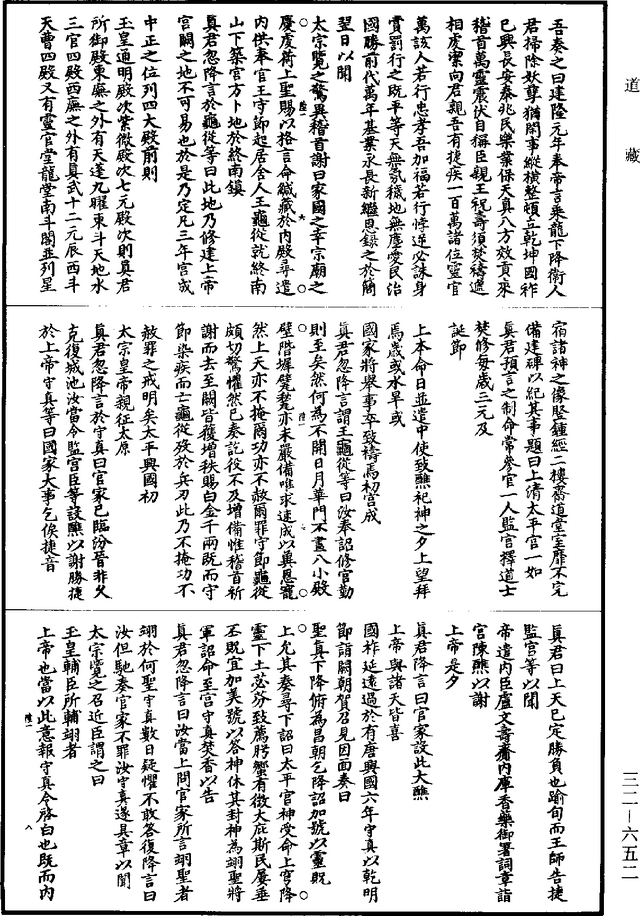 道藏
吾奏之曰建隆元年奉帝言乘龍下降衛人
君掃除妖孽猶閑事縱橫整頓立乾坤國祚
已興長安泰兆民樂業保天真八方效貢來
稽首萬靈震伏自稱臣親王祝壽須焚禱遞
相虔潔向君親吾有捷疾一百萬諸位靈官
萬該人若行忠孝吾加福若行悖逆必誅身
賞罰行之既平等天無氛穢地無塵愛民治
國勝前代萬年基業永長新繼恩錄之於簡
翌日以聞
太宗覽之驚異稽首謝曰家國之幸宗廟之
慶虔荷上聖賜以格言命緘藏於內殿尋遣
內供奉官王守節起居舍人王龜從就終南
山下築宮方卜地於終南鎮
真君忽降言於龜從等曰此地乃修建上帝
宮闕之地不可易也於是乃定凡三年宮成
中正之位列四大殿前則
玉皇通明殿次紫微殿次七元殿次則真君
所御殿東廡之外有天蓬九曜東斗天地水
三官四殿西廡之外有真武十二元辰西斗
天曹四殿又有靈官堂龍堂南斗閣並列星
宿諸神之像暨鍾經二樓齋道堂室靡不完
備建碑以紀其事題曰上清太平宮一如
真君預言之制命常參官一人監宮擇道士
焚修每歲三元及
誕節
上本命日並遣中使致醮祀神之夕上望拜
焉歲或水旱或
國家將舉事率致禱焉初宮成
真君忽降言謂王龜從等曰汝奉詔修宮勤
則至矣然何為不開日月華門不畫八小殿
壁階墀甓甃亦未嚴備唯求速成以冀恩寵
然上天亦不掩爾功亦不赦爾罪守節龜從
頗切驚懼然已奏訖役不及增備惟稽首祈
謝而去至闕皆獲增秩賜白金千兩既而守
節染疾而亡龜從歿於兵刃此乃不掩功不
赦罪之戒明矣太平興國初
太宗皇帝親征太原
真君忽降言於守真曰官家已臨汾晉非久
克復城池汝當令監宮臣等設醮以謝勝捷
於上帝守真等曰國家大事乞俟捷音
真君曰上天已定勝負也踰旬而王師告捷
監宮等以聞
帝遣內臣盧文壽齎內庫香藥御署詞章詣
宮陳醮以謝
上帝是夕
真君降言曰官家設此大醮
上帝與諸天皆喜
國祚延遠過於有唐興國六年守真以乾明
節詣闕朝賀召見因面奏曰
聖真下降俯為昌朝乞降詔加號以靈貺
上允其奏尋下詔曰太平宮神受命上穹降
靈下土苾芬致薦肹蠁有徵大庇斯民屢垂
丕貺宜加美號以答神休其封神為翊聖將
軍詔命至宮守真焚香以告
真君忽降言曰汝當上問官家所言翊聖者
翊於何聖守真數日疑懼不敢答復降言曰
汝但馳奏官家不罪汝守真遂具章以聞
太宗覽之召近臣謂之曰
玉皇輔臣所輔翊者
上帝也當以此意報守真令啓白也既而內
三二—六五二